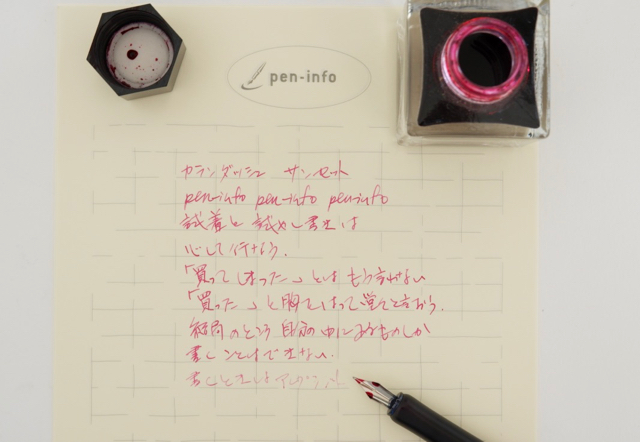 pen-info
カランダッシュ サンセット
pen-info pen-info pen-info
試着と試し書きは
心して行なう.
「買ってしまった」とはもう言わない
「買った」と胸をはって堂々と言おう.
結局のところ自分の中にあるものしか
書くことはできない.
書くことは